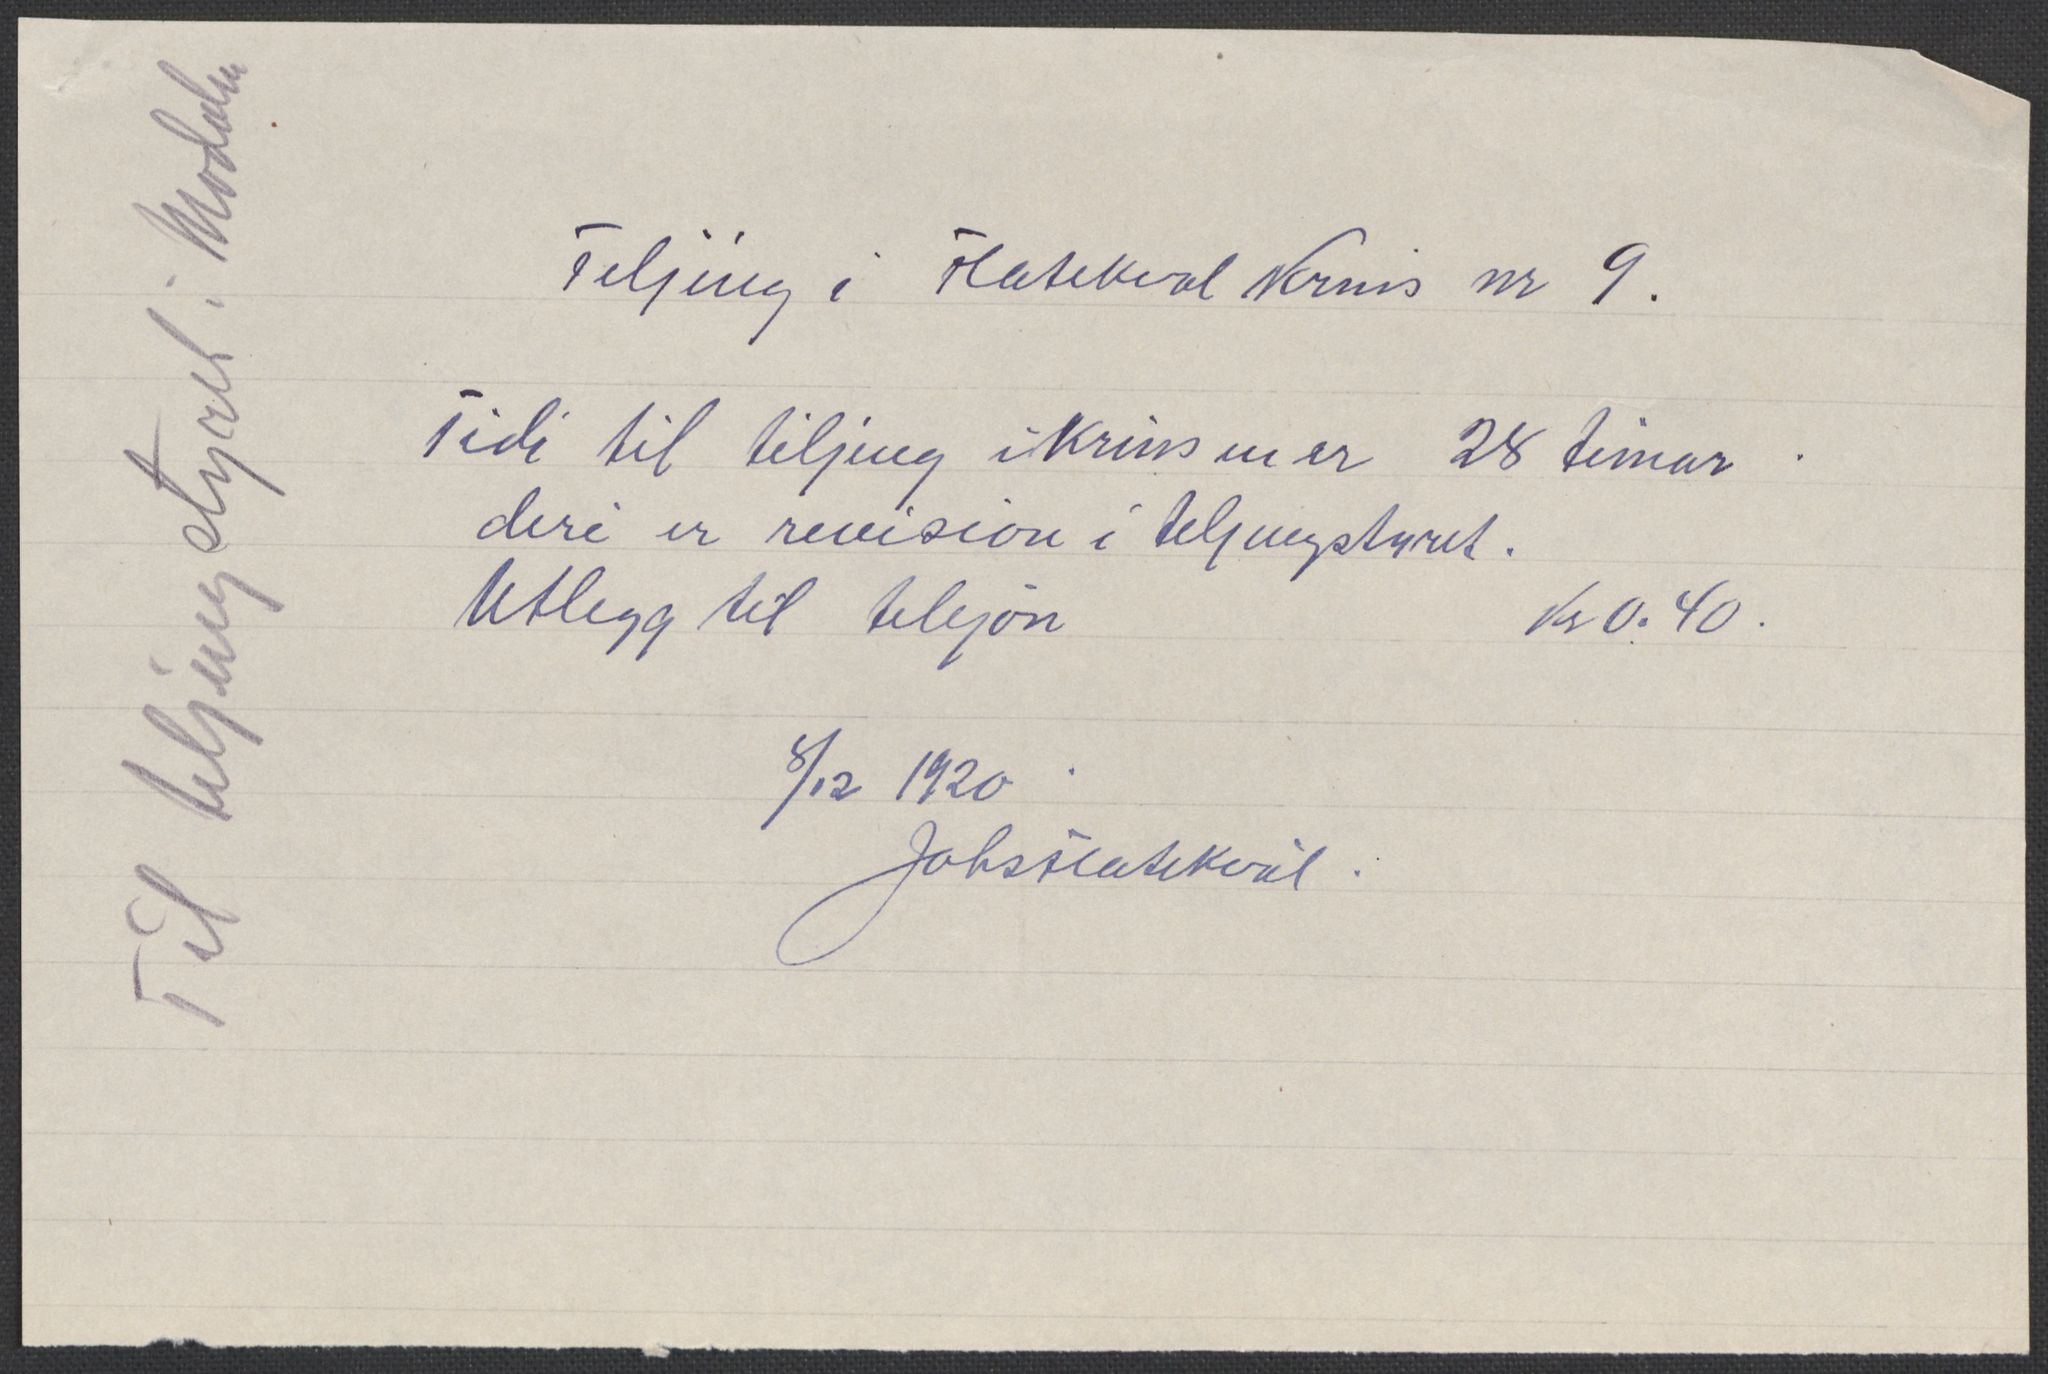 Til teljingstyret i Modalen
Teljing i Flatekval Krins nr 9.
Tidi til teljing i Krinsen er 28 timar.
deri er revision i teljingstyret.
Utlegg til telefon Kr 0.40.
8/12 1920
Johs Flatekvål.